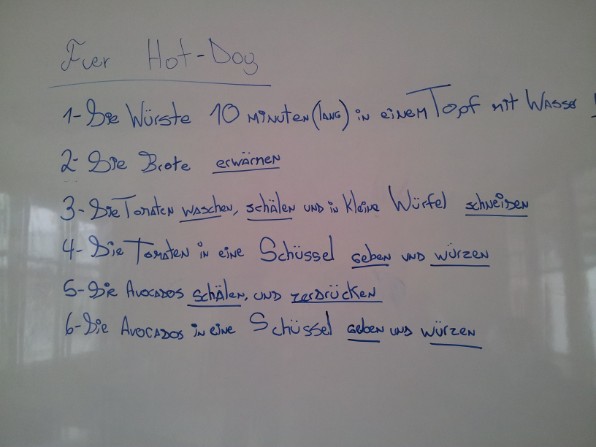 Fuer Hot-Dog
1- Die Würste 10 minuten (lang) in einem Topf mit Wasser
2- Die Brote erwärmen
3- Die Tomaten waschen, schälen und in kleine Würfel schneiden
4- Die Tomaten in eine Schüssel geben und würzen
5- Die Avocados schälen, und zerdrücken
6- Die Avocados in eine Schüssel geben und würzen